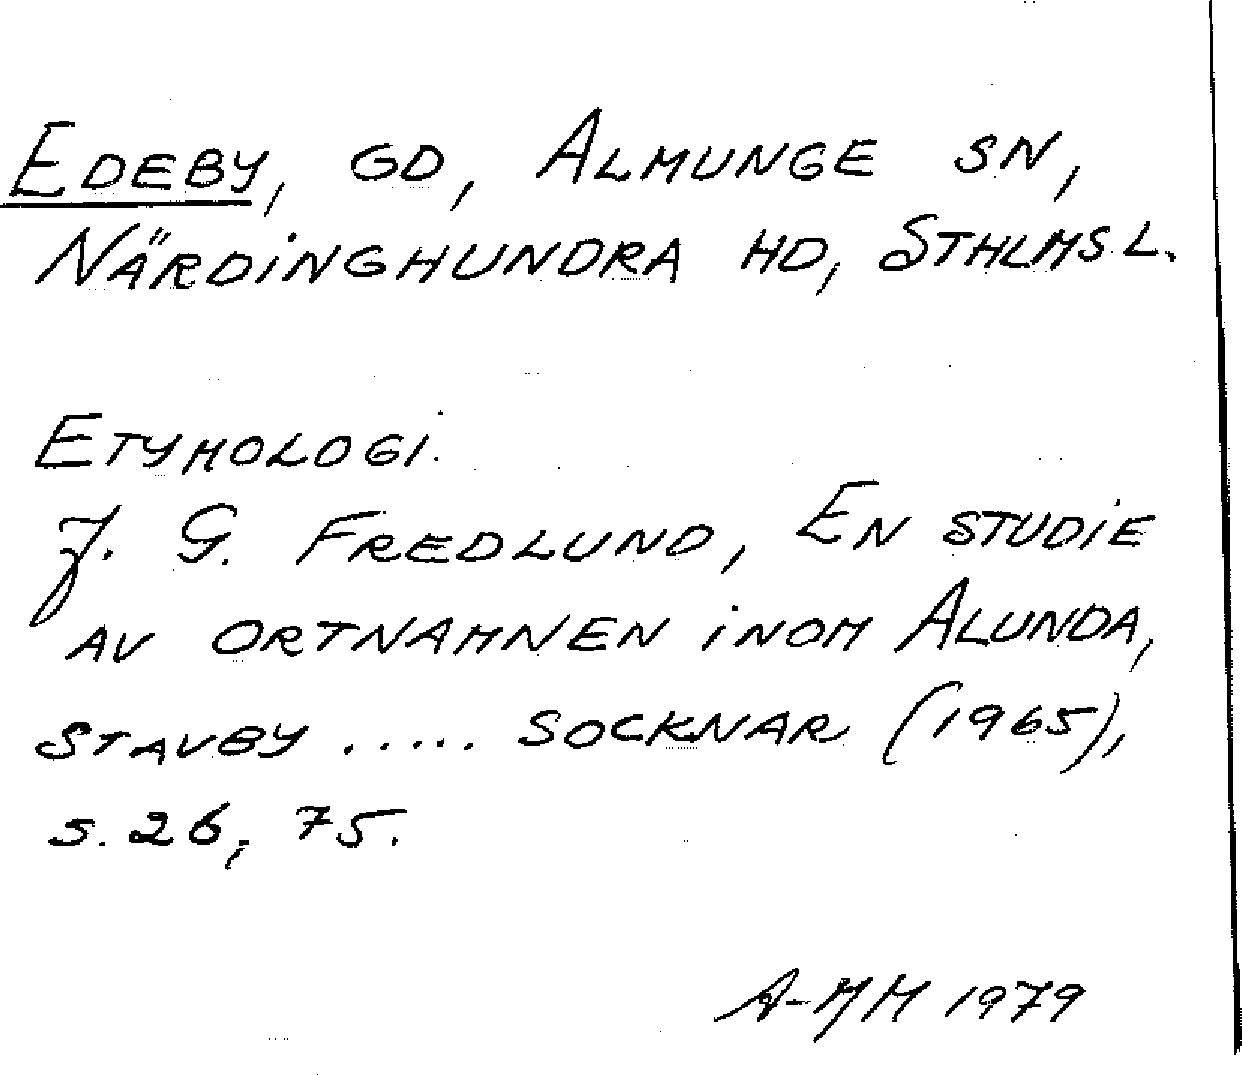 EDEBY, GD, ALMUNGE SN,
NÄRDINGHUNDRA HD, STHLMS L.
ETYMOLOGI.
J. G. FREDLUND, EN STUDIE
AV ORTNAMNEN INOM ALUNDA,
STAVBY ..... SOCKNAR (1965),
S. 26, 75.
A-MM 1979